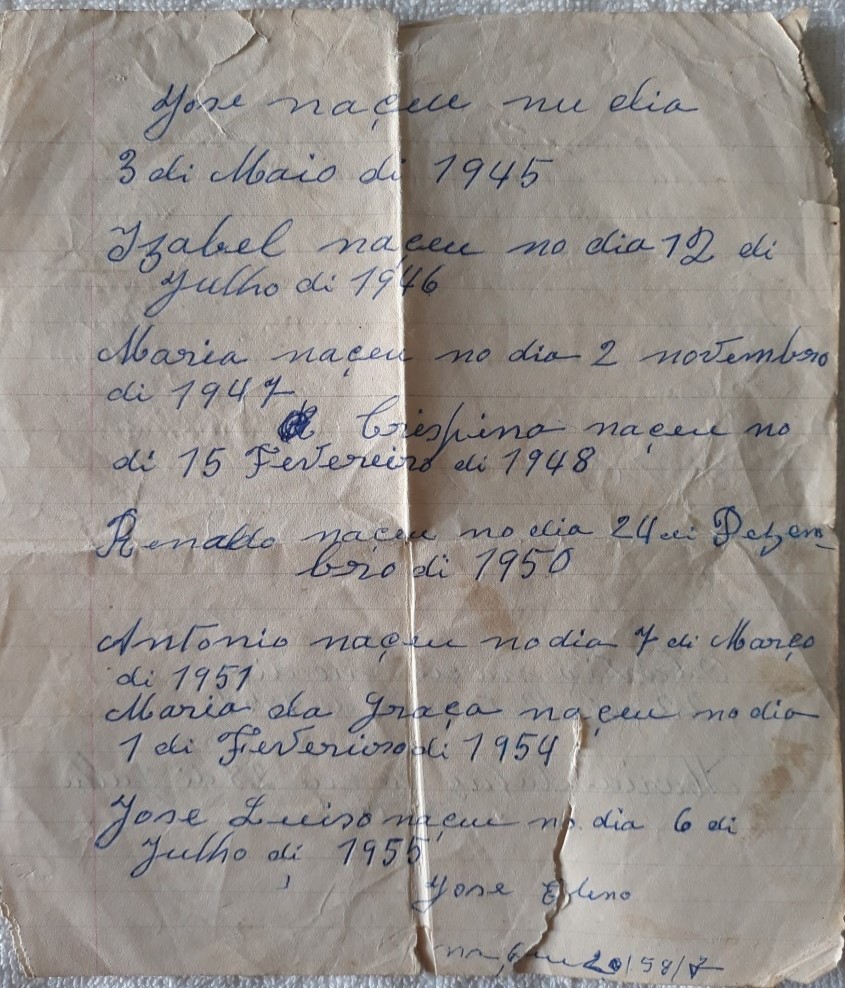 Jose naçeu nu dia
3 di Maio di 1945
Izabel naçeu no dia 12 di
Julho di 1946
Maria naçeu no dia 2 novembro
di 1947
Crispino naçeu no
di 15 Fevereiro di 1948
Renaldo naçeu no dia 24 di Dezem-
bro di 1950
Antonio naçeu no dia 7 di Março
di 1951
Maria da Graça naçeu no dia
1 di Feverioso di 1954
Jose Luiso naçeu no dia 6 di
Julho di 1955
Jose Eleno
naçeu 58/7